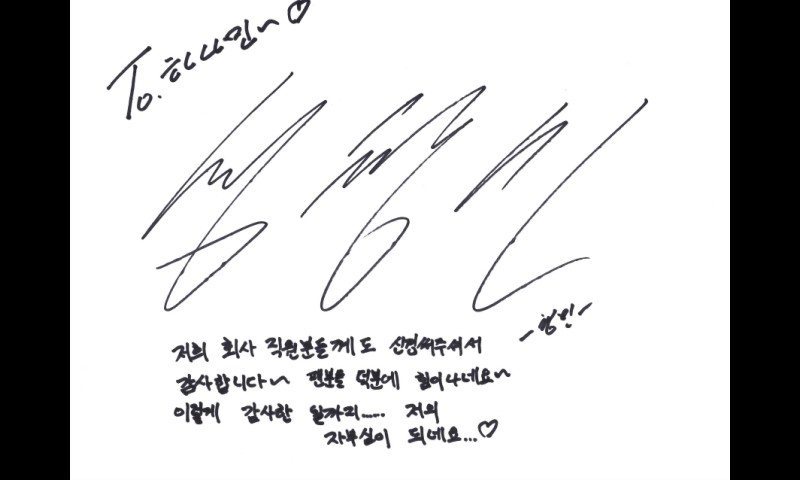 To. 하나민~♡
-형빈-
저희 회사 직원분들께도 신경써주셔서
감사합니다~ 팬분들 덕분에 힘이나네요~
이렇게 감사한 일까지..... 저의
자부심이 되네요...♡